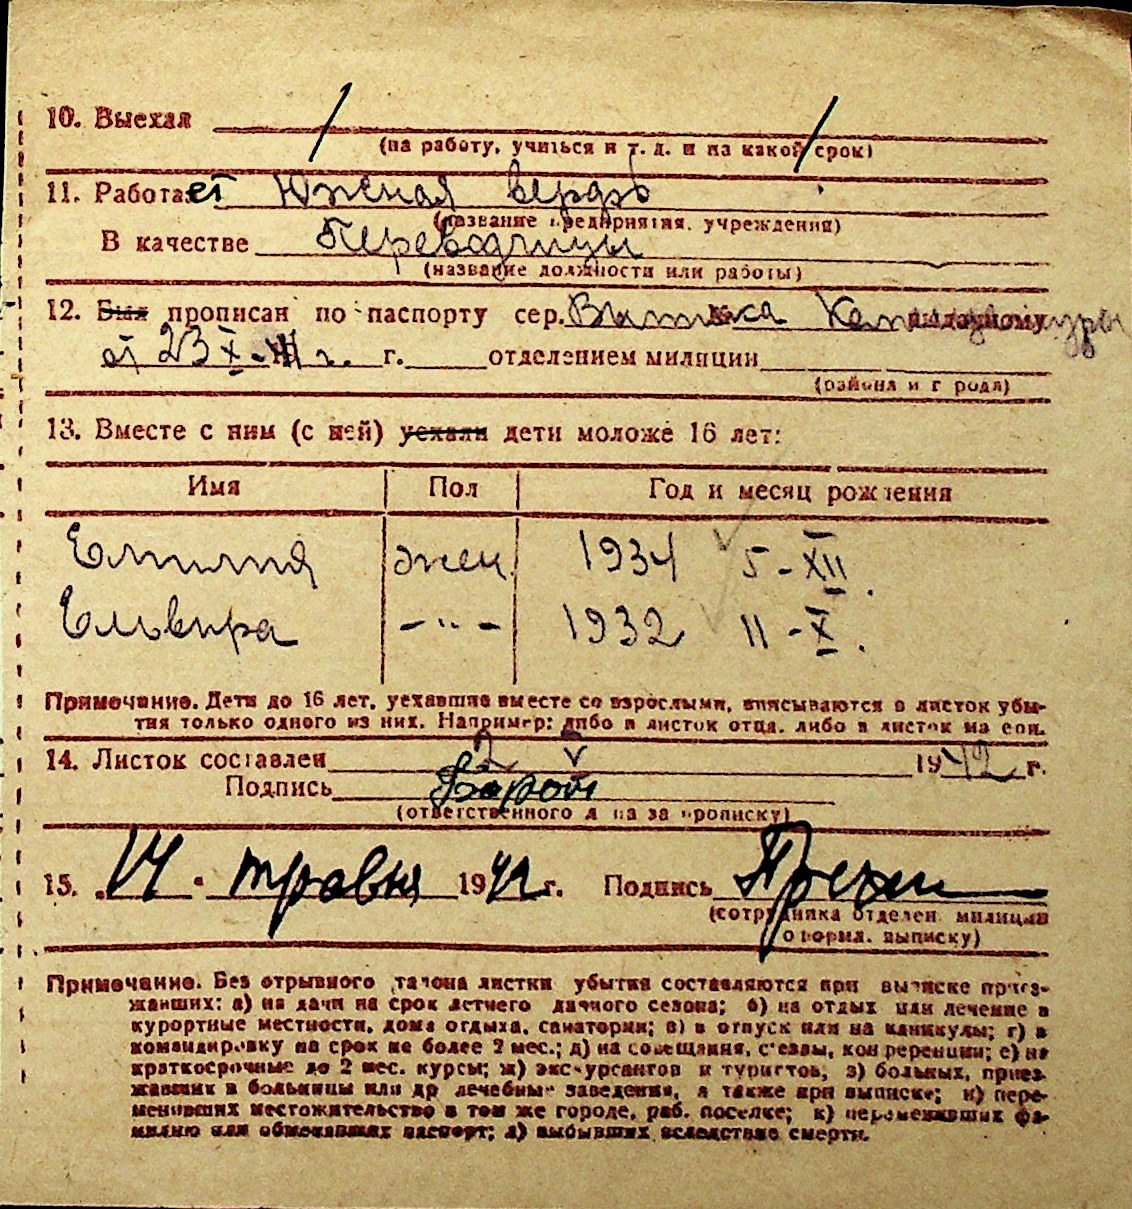 10. Выехал / /
(на работу, учиться и т. д. и на какой срок)
11. Работает Южная верфь
(название предприятия, учреждения)
В качестве Переводчицы
(название должности или работы)
12. Был прописан по паспорту сер. Выписка Комендатуры выданному
от 23 X - 41 г. г. отделением милиции
(района и города)
13. Вместе с ним (с ней) уехали дети моложе 16 лет:
Имя Пол Год и месяц рождения
Емилия жен. 1934 5 - XII.
Ельвира - " - 1932 11 - X.
Примечание. Дети до 16 лет, уехавшие вместе со взрослыми, вписываются в листок убы-
тия только одного из них. Например: либо в листок отца, либо в листок матери.
14. Листок составлен 2 V 1942 г.
Подпись
(ответственного лица за прописку)
15. „14" травня 1942 г. Подпись
(сотрудника отделен. милиции
оформл. выписку)
Примечание. Без отрывного талона листки убытия составляются при выписке приез-
жавших: а) на дачи на срок летнего дачного сезона; б) на отдых или лечение в
курортные местности, дома отдыха, санатории; в) в отпуск или на каникулы; г) в
командировку на срок не более 2 мес.; д) на совещания, съезды, конференции; е) на
краткосрочные до 2 мес. курсы; ж) экскурсантов и туристов, з) больных, приез-
жавших в больницы или др лечебные заведения, а также при выписке; и) пере-
менивших местожительство в том же городе, раб. поселке; к) переменивших фа-
милию или обменявших паспорт; л) выбывших вследствие смерти.